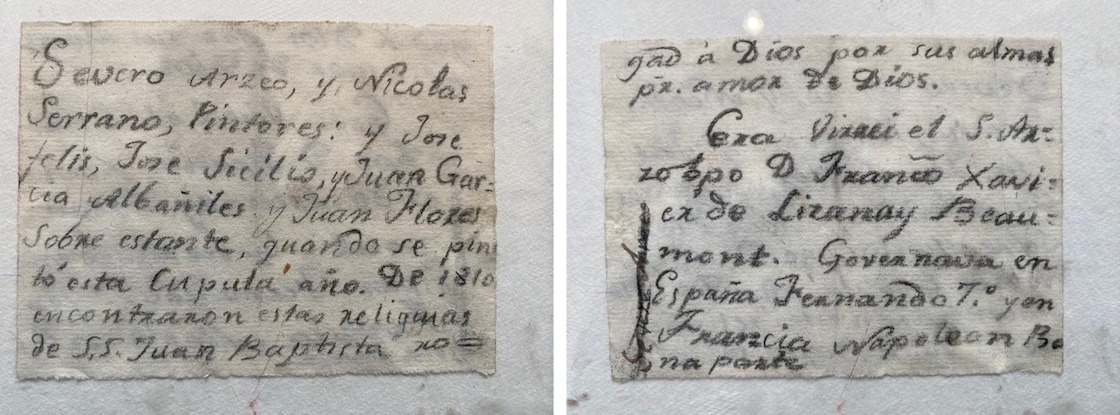 Severo Arzeo, y, Nicolas
Serrano, Pintores: y Jose
felis, Jose Sicilis, y Juan Gar=
cia Albañiles. y Juan Flores
Sobre estante, quando se pin
tó esta Cupula año. De 1810
encontraron estas religuias
de S.S. Juan Baptista ro=
gad à Dios por sus almas
pr. amor de Dios.
Era Virrei el S. Ar=
zobpo D Franco Xavi=
er de Lizanay Beau=
mont. Governava en
España Fernando 7.º y en
Francia Napoleon Bo
na parte